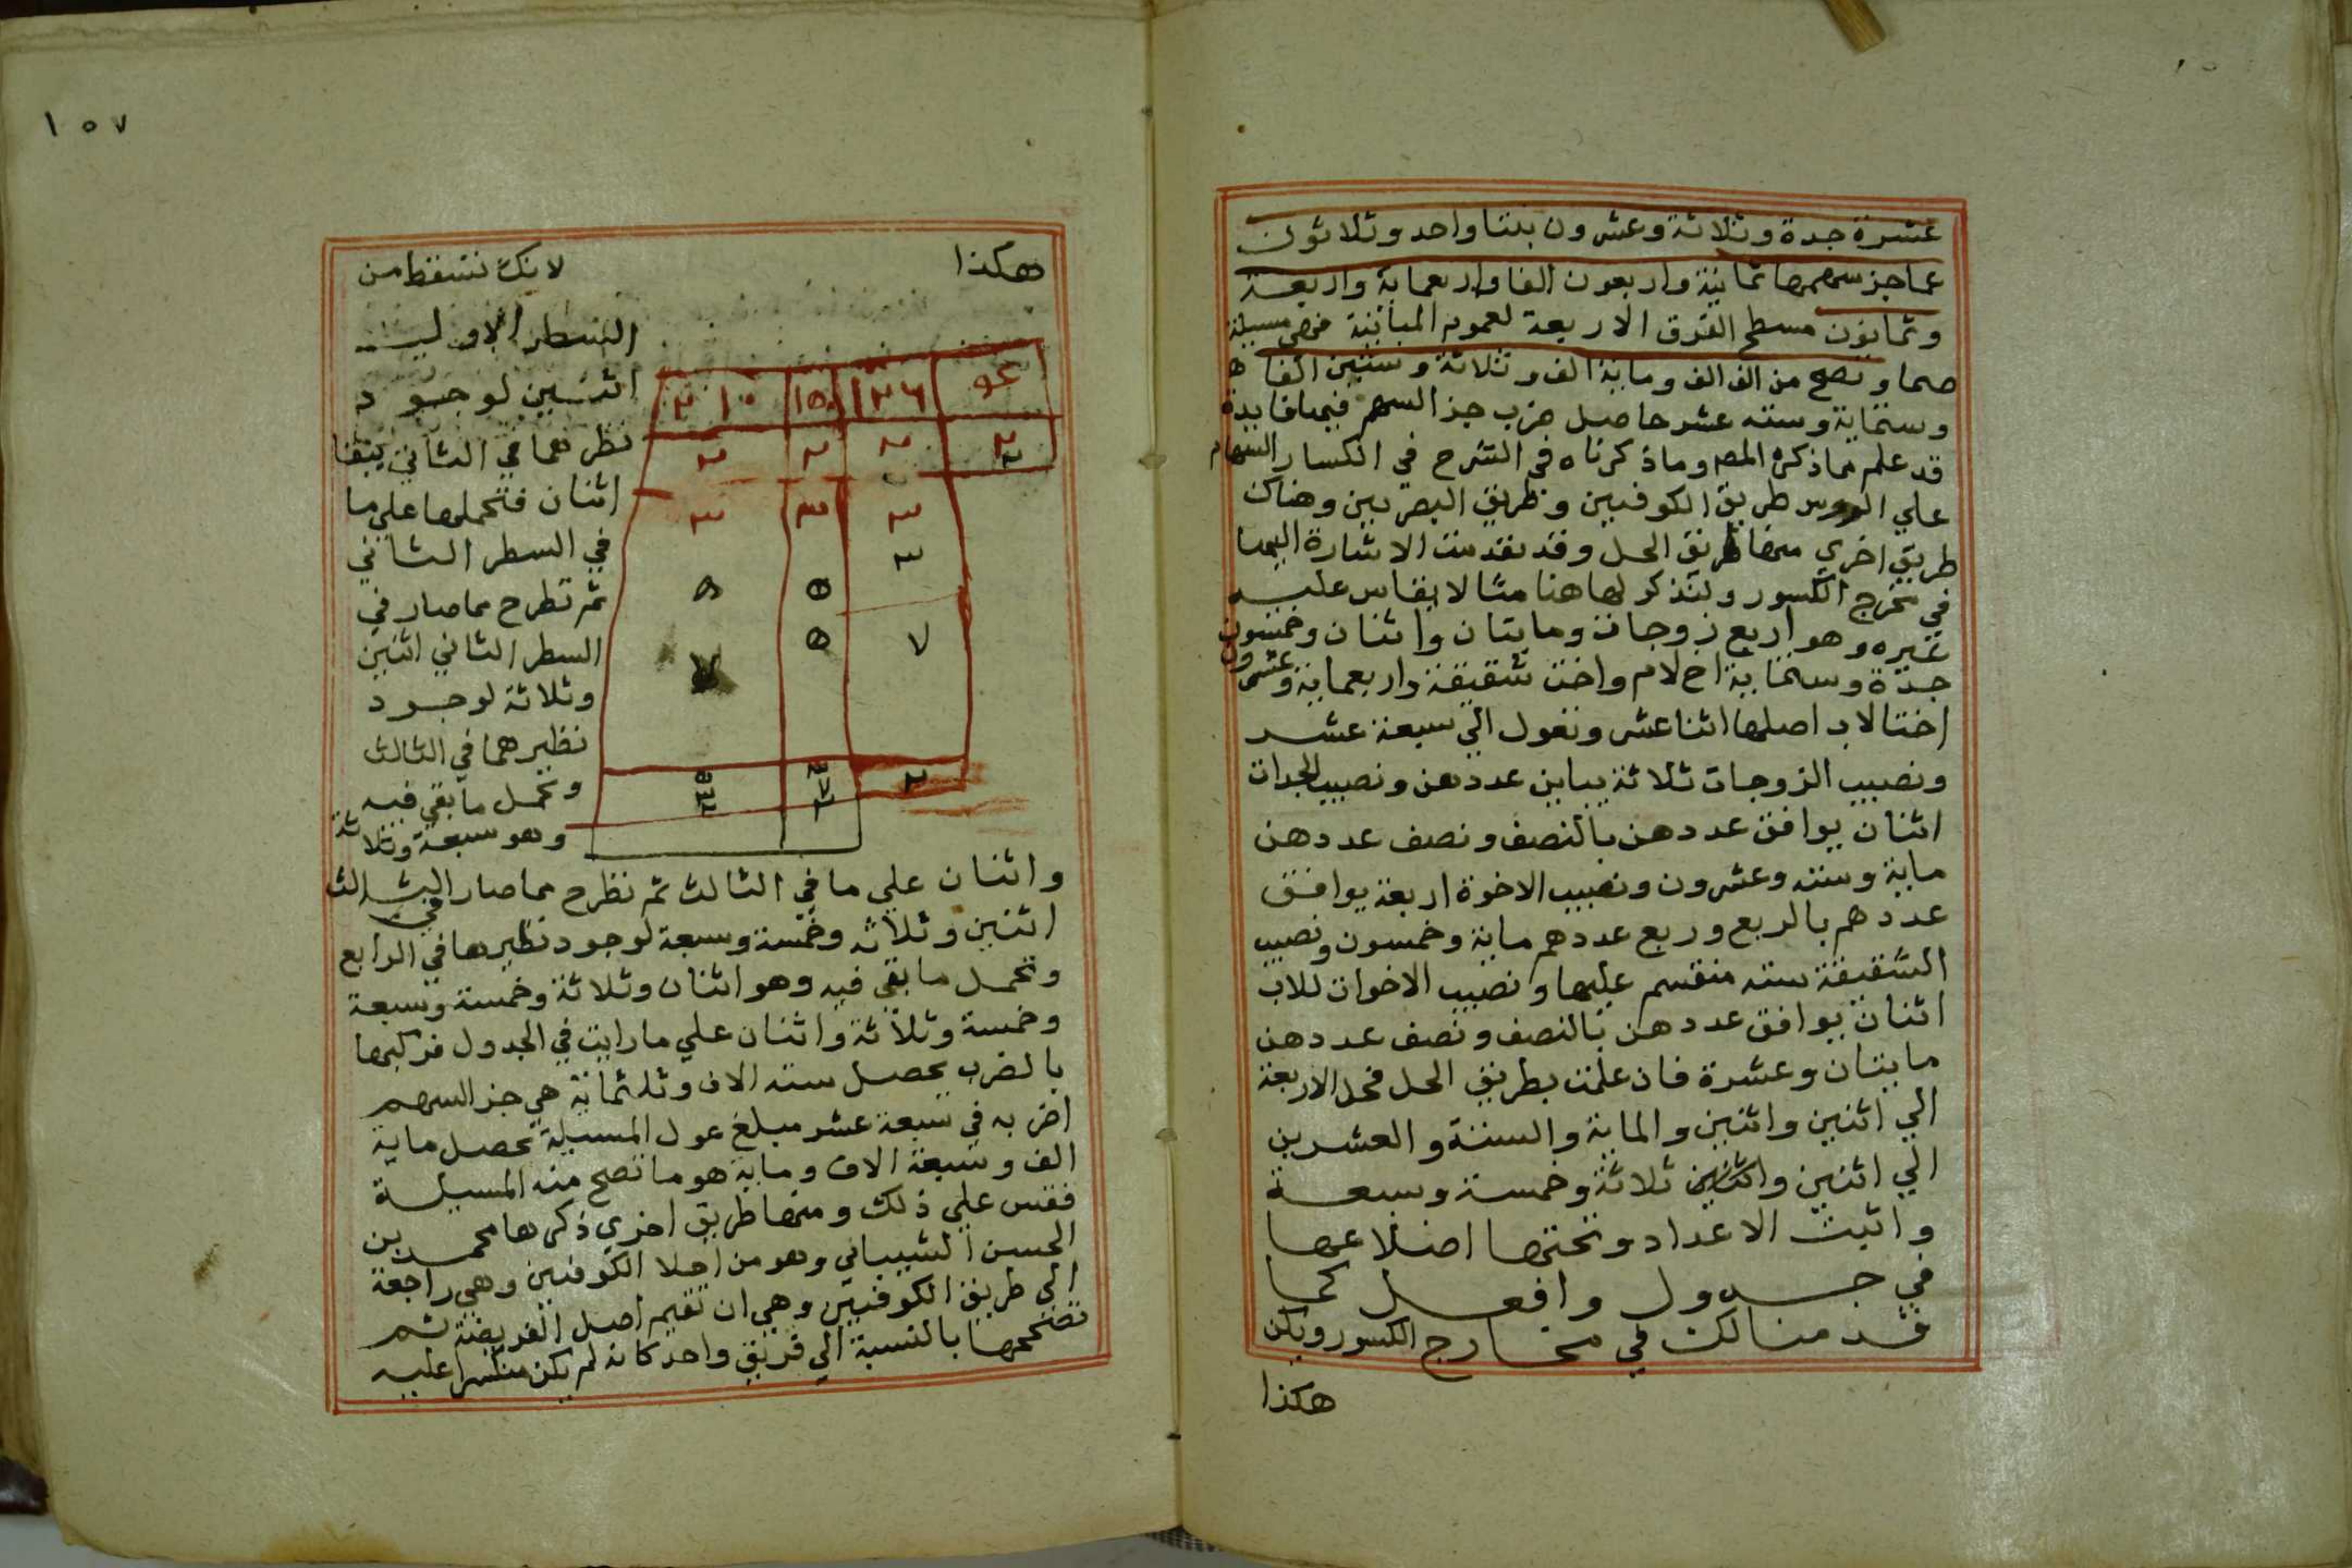 عشرة جدة وثلاثة وعشرون بنتا واحد وثلاثون
عما جز سهمها ثمانية واربعون الفا واربعماية واربعة
وثمانون مسطح الفرق الاربعة لعموم المباينة فهي مسيلة
صما وتصح من الف الف وماية الف وثلاثة وستين الفا
وستماية وستة عشر حاصل ضرب جز السهم فيها فايدة
قد علم مما ذكره المصـ وما ذكرناه في الشرح في انكسار السهام
علي الروس طريق الكوفيين وطريق البصريين وهناك
طريق اخري منها طريق الحل وقد تقدمت الاشارة اليها
في مخرج الكسور ولنذكر لها هنا مثالا يقاس عليه
غيره وهو اربع زوجات ومايتان واثنان وخمسون
جدة وستماية اخ لام واخت شقيقة واربعماية وعشرون
اختا لاب اصلها اثنا عشر وتعول الي سبعة عشر
ونصيب الزوجات ثلاثة يباين عددهن ونصيب الجدات
اثنان يوافق عددهن بالنصف ونصف عددهن
ماية وستة وعشرون ونصيب الاخوة اربعة يوافق
عددهم بالربع وربع عددهم ماية وخمسون ونصيب
الشقيقة ستة منقسم عليها ونصيب الاخوات للاب
اثنان يوافق عددهن بالنصف ونصف عددهن
مايتان وعشرة فان علمت بطريق الحل فحل الاربعة
الي اثنين واثنين والماية والستة والعشرين
الي اثنين واثنين ثلاثة وخمسة وسبعة
واثبت الاعداد وتحتها اضلاعها
في جدول وافعل كما
قدمنا لك في مخارج الكسور ويكن
هكذا
١٥٧
هكذا
لانك تسقط من
السطر الاول
اثنين لوجود
نظرهما في الثاني يبقا
اثنان فتحملها علي ما
في السطر الثاني
ثم تطرح مما صار في
السطر الثاني اثنين
وثلاثة لوجود
نظيرهما في الثالث
وتحمل ما بقي فيه
وهو سبعة وثلاثة
١٢٦ ١٥٠ ٢١٠
٢ ٢ ٢ ٢
٣ ٣ ٣
٣ ٥ ٥
٧ ٥ ٧
٢
واثنان علي ما في الثالث ثم تطرح مما صار في الثالث
اثنين وثلاثه وخمسة وسبعة لوجود نظيرها في الرابع
وتحمل ما بقي فيه وهو اثنان وثلاثة وخمسة وسبعة
وخمسة وثلاثة واثنان علي ما رايت في الجدول فركبها
بالضرب يحصل ستة الاف وثلثماية هي جز السهم
اضربه في سبعة عشر مبلغ عول المسيلة يحصل ماية
الف وسبعة الاف وماية هو ما تصح منه المسيلة
فقس علي ذلك ومنها طريق اخري ذكرها محمد بن
الحسن الشيباني وهو من اجلا الكوفيين وهي راجعة
الي طريق الكوفيين وهي ان تقيم اصل الفريضة ثم
تصححها بالنسبة الي فريق واحد كانه لم يكن منكسرا عليه